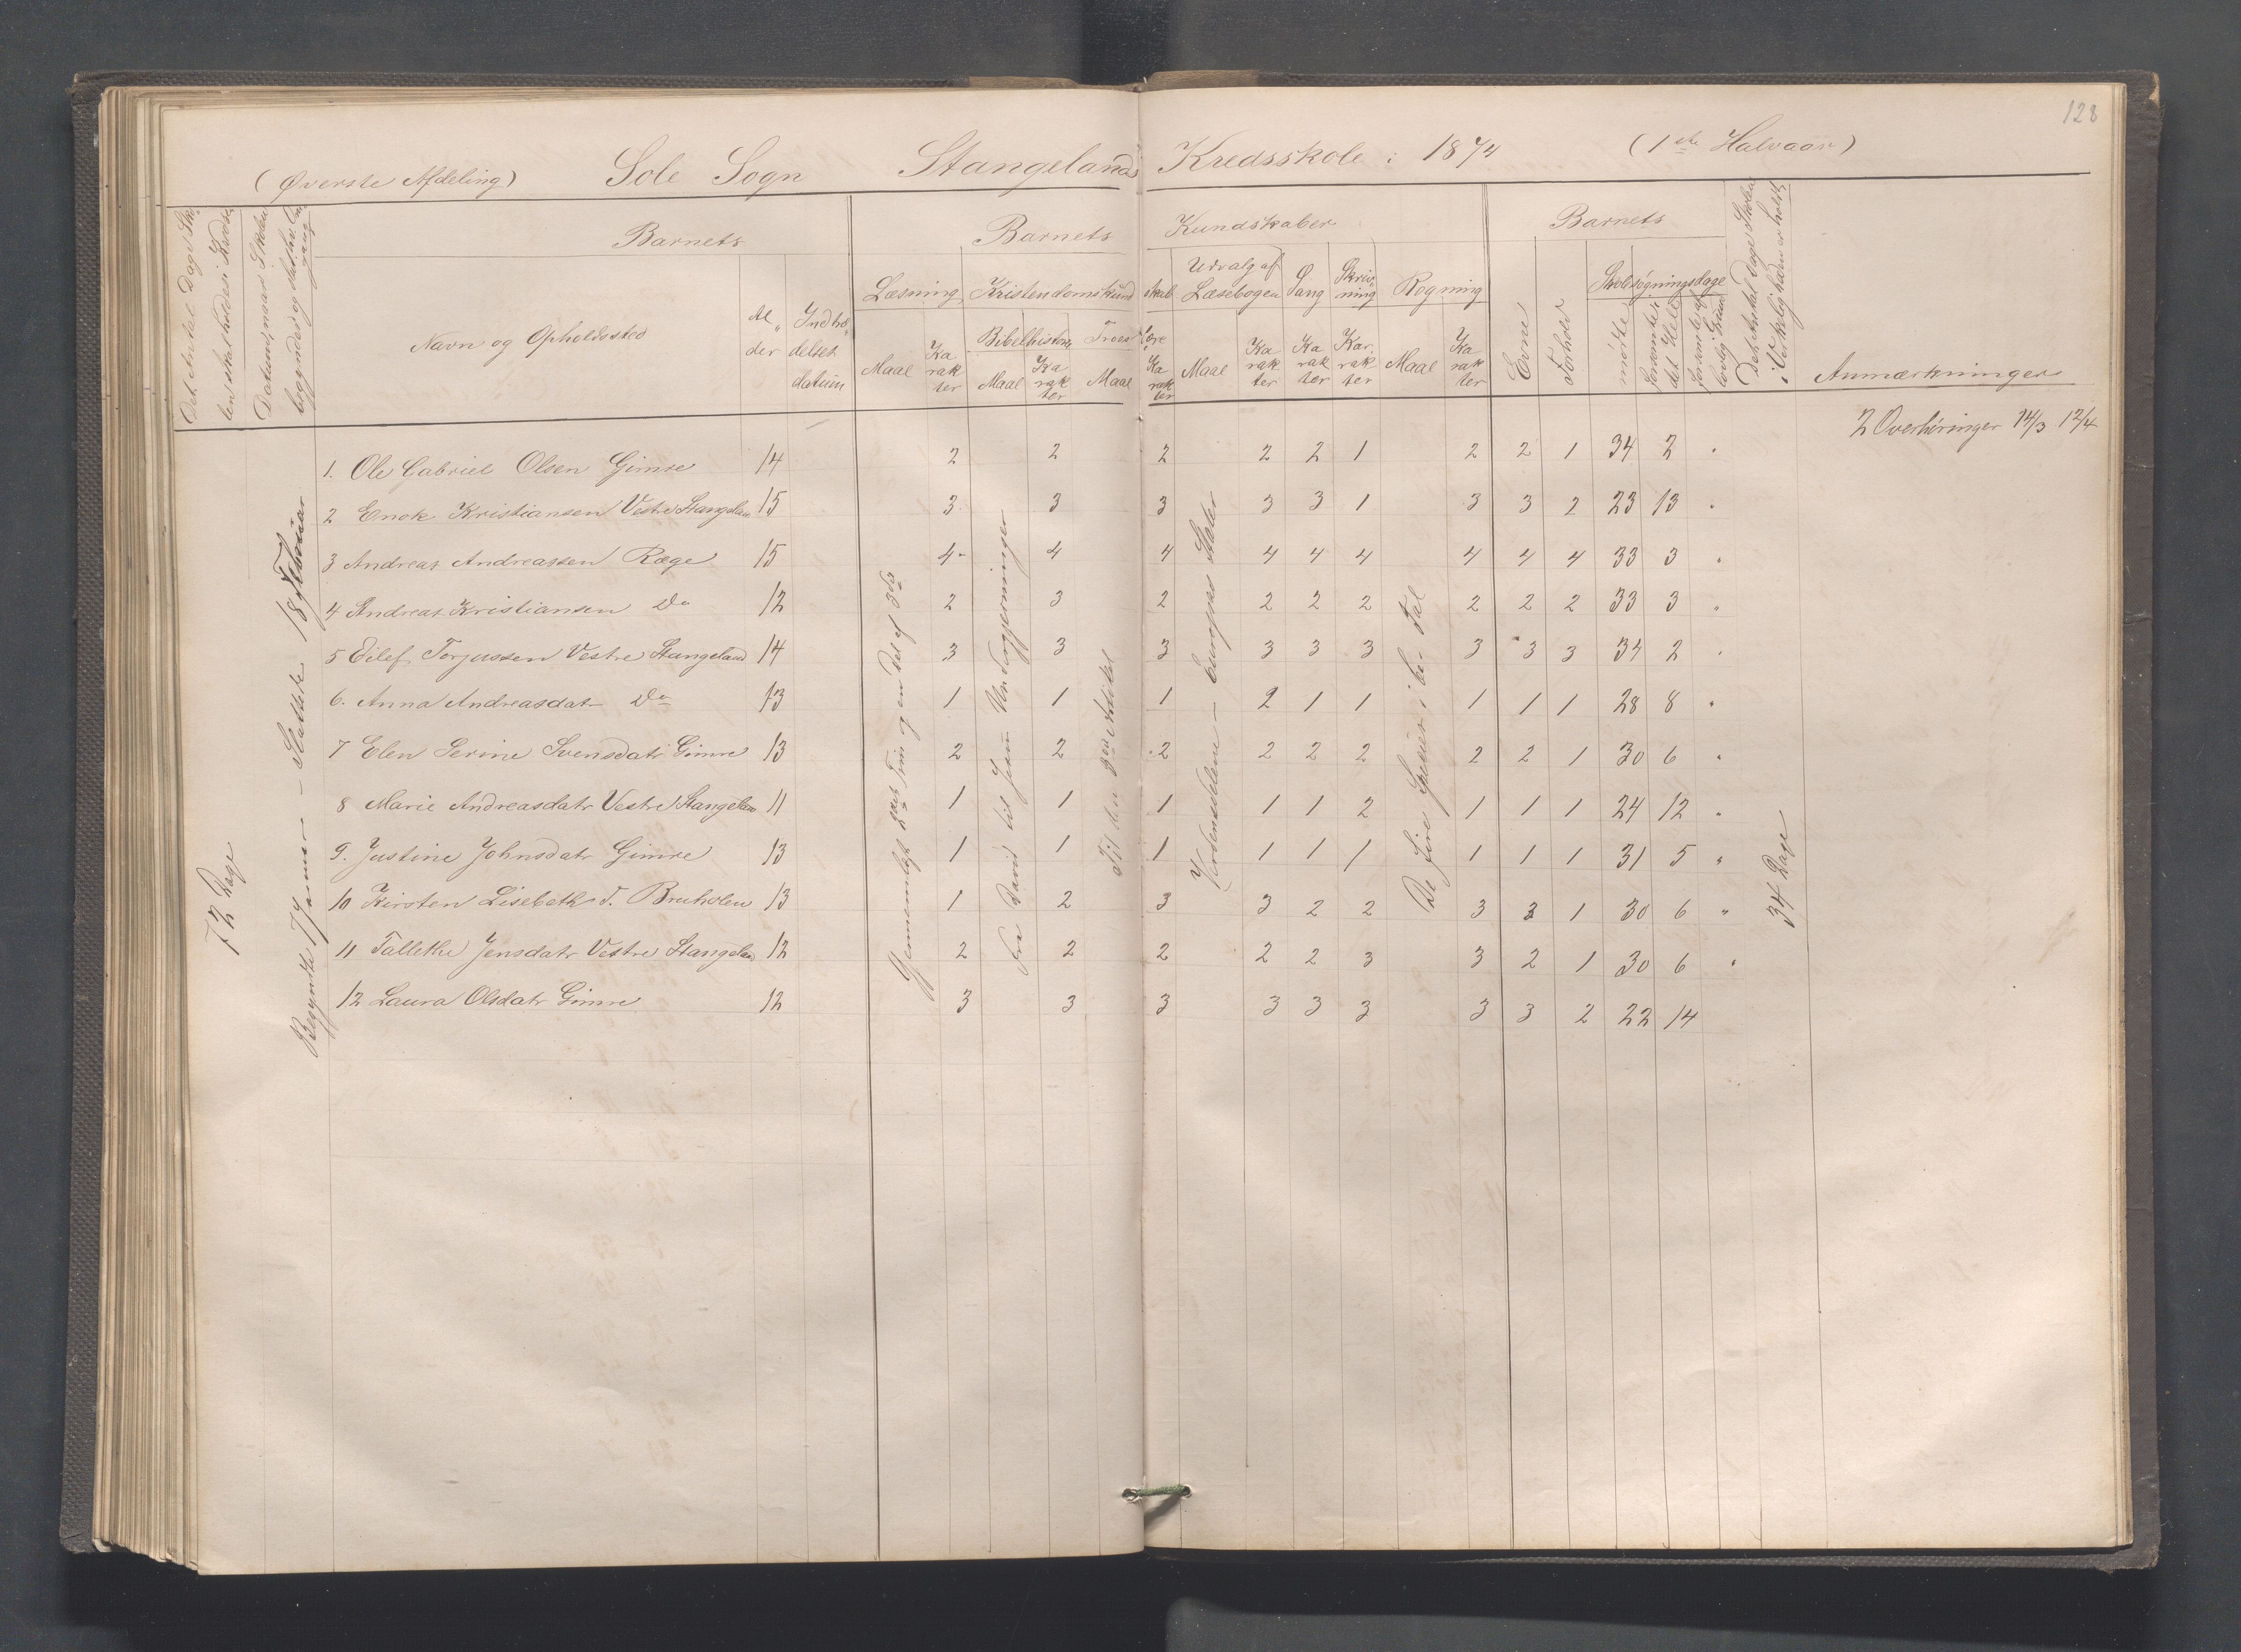 128
(Øverste Afdeling) Sole Sogn Stangelands Kredsskole i 1874 (1ste Halvaar)
Det Antal Dage Sko-
len skal holdes i Kredsen
Datum, naar Skolen
begyndes og sluttes
Barnets
Navn og Opholdssted
Al-
der
Indtræ-
delses
datum
Barnets Kundskaber
Læsning
Maal
Ka
rak
ter
Kristendomskundskab
Bibelhistorie
Maal
Ka
rak
ter
Troeslære
Maal
Ka
rak
ter
Udvalg af
Læsebogen
Maal
Ka
rak
ter
Sang
Ka
rak
ter
Skriv-
ning
Kar
rak
ter
Regning
Maal
Ka
rak
ter
Barnets
Evne
Forhold
Skolesøgningsdage
mødte
forsømte i
det Hele
forsømte af
lovlig Grund
Det Antal Dage Skolen
i Virkeligheden er holdt
Anmærkninger
72 Dage
Begyndte 7 Januar - Sluttede 18 Februar
Gjennemlæst 2det Trin og en Del af 3die
Fra David til Jesu Undergjerninger
Til den 3die Artikel
Verdensdelene - Europas Stater
De fire Specier i be- Tal
34 Dage
2 Overhøringer 14/3 12/4
1. Ole Gabriel Olsen Gimre 14 2 2 2 2 2 1 2 2 1 34 2 "
2 Enok Kristiansen Vestre Stangeland 15 3 3 3 3 3 1 3 3 2 23 13 "
3 Andreas Andreassen Ræge 15 4- 4 4 4 4 4 4 4 4 33 3 "
4 Andreas Kristiansen Do 12 2 3 2 2 2 2 2 2 2 33 3 "
5 Eilef Torjussen Vestre Stangeland 14 3 3 3 3 3 3 3 3 3 34 2 "
6. Anna Andreasdat Do 13 1 1 1 2 1 1 1 1 1 28 8 "
7 Elen Serine Svensdatr Gimre 13 2 2 2 2 2 2 2 2 1 30 6 "
8 Marie Andreasdatr Vestre Stangeland 11 1 1 1 1 1 2 1 1 1 24 12 "
9. Justine Johnsdatr Gimre 13 1 1 1 1 1 1 1 1 1 31 5 "
10 Kirsten Lisebeth T. Bruholen 13 1 2 3 3 2 2 3 3 1 30 6 "
11 Tallette Jensdatr Vestre Stangeland 12 2 2 2 2 2 3 3 2 1 30 6 "
12 Laura Olsdatr Gimre 12 3 3 3 3 3 3 3 3 2 22 14